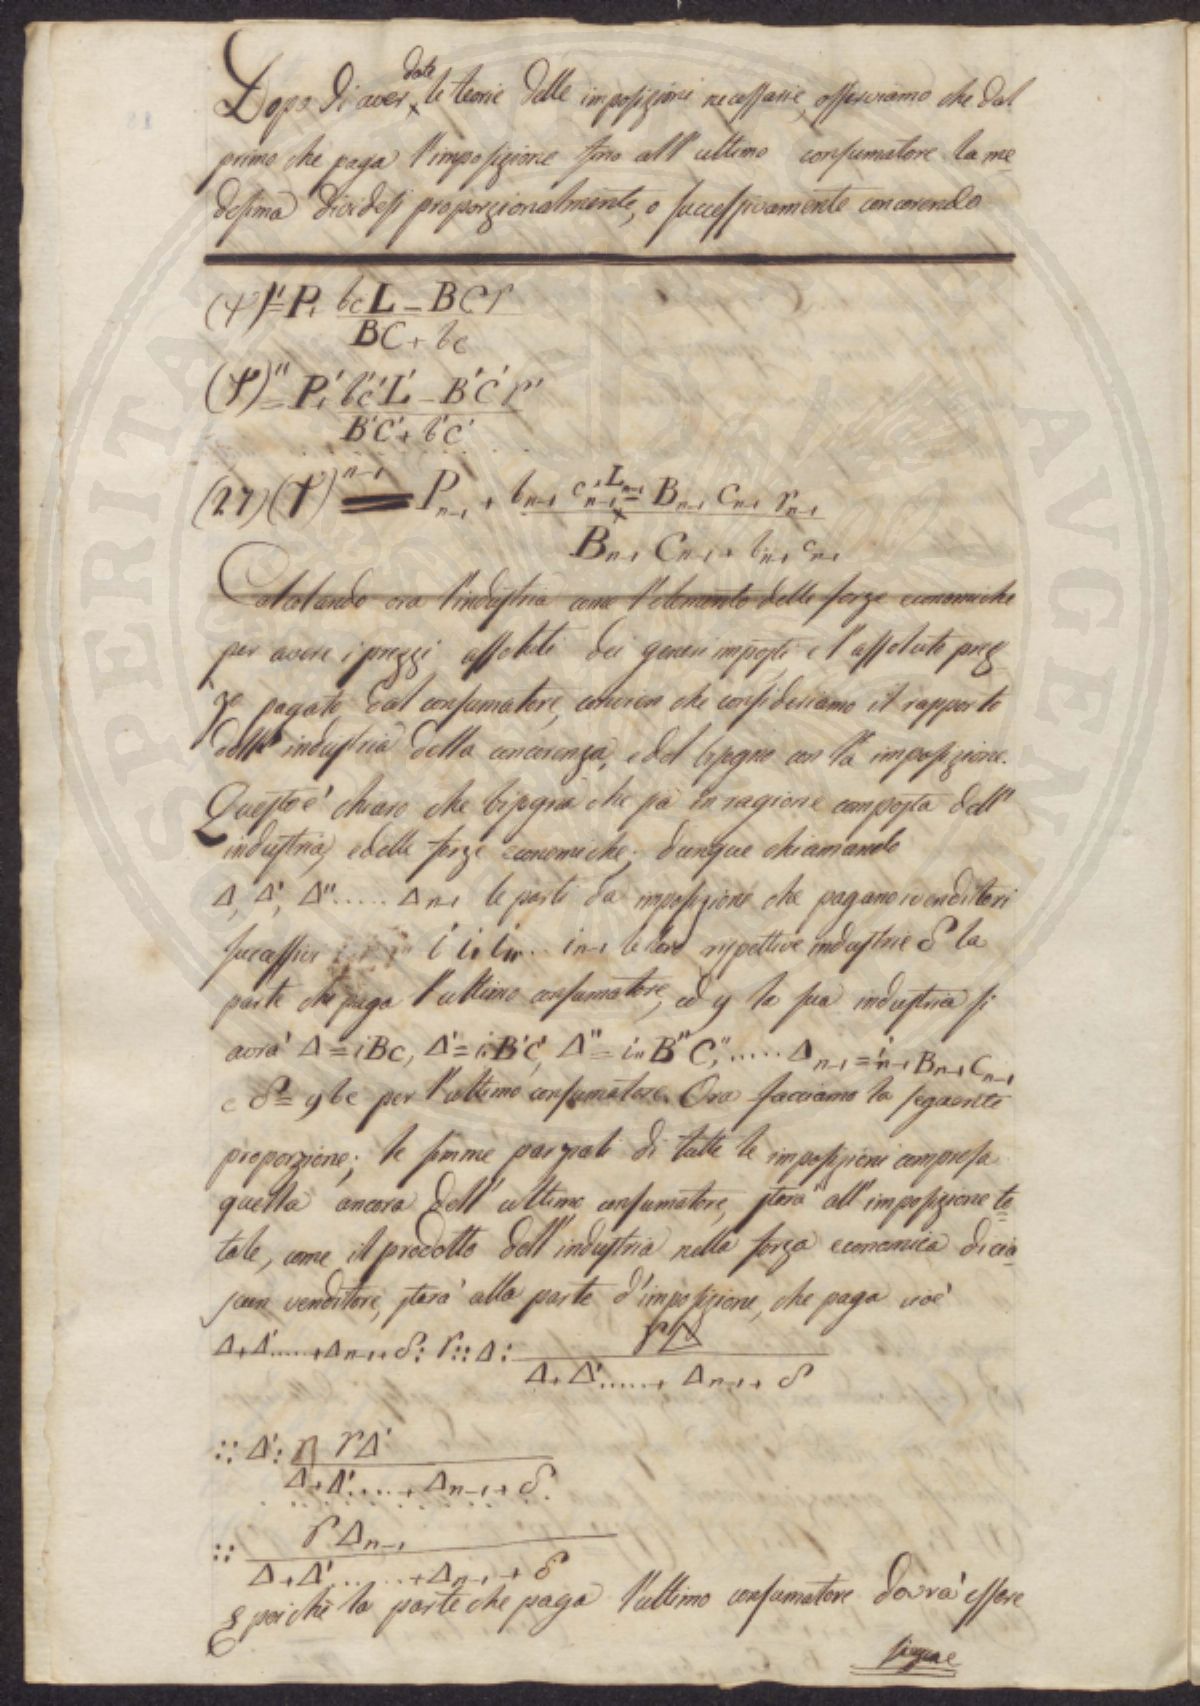 Dopo di aver date le teorie delle imposizioni necessarie, osserviamo che dal
primo che paga l'imposizione fino all'ultimo consumatore la me
desima dividesi proporzionalmente, o successivamente concorendo
(φ)' = P + bcL - BCr / BC + bc
(φ)'' = P' + b'c'L' - B'C'r' / B'C' + b'c'
(27) (φ)^n-1 = P_n-1 + b_n-1 c_n-1 L_n-1 - B_n-1 C_n-1 r_n-1 / B_n-1 C_n-1 + b_n-1 c_n-1
Calcolando ora l'industria come l'elemento delle forze economiche
per avere i prezzi assoluti dei generi imposti e l'assoluto prez
zo pagato dal consumatore, convien che consideriamo il rapporto
dell'industria della concorenza, e del bisogno con la imposizione.
Questo è chiaro che bisogna che sia in ragione composta dell'
industria, e delle forze economiche; dunque chiamando
Δ, Δ', Δ''..... Δn-1 le parti da imposizione che pagano i venditori
successivi i i, i,, ... in-1 le loro rispettive industrie δ la
parte che paga l'ultimo consumatore, ed y la sua industria si
avrà Δ = iBC, Δ' = i,B'C', Δ'' = i,,B''C'',..... Δn-1 = in-1 Bn-1 Cn-1
e δ = ybc per l'ultimo consumatore. Ora facciamo la seguente
proporzione; le somme parziali di tutte le imposizioni compresa
quella ancora dell'ultimo consumatore, starà all'imposizione to
tale, come il prodotto dell'industria nella forza economica di cia
scun venditore, starà alla parte d'imposizione, che paga cioè
Δ+Δ'.....+Δn-1+δ : r :: Δ : rΔ / Δ+Δ'.....+Δn-1+δ
:: Δ' : rΔ' / Δ+Δ'....+Δn-1+δ
:: rΔn-1 / Δ+Δ'......+Δn-1+δ
E poichè la parte che paga l'ultimo consumatore dovrà essere